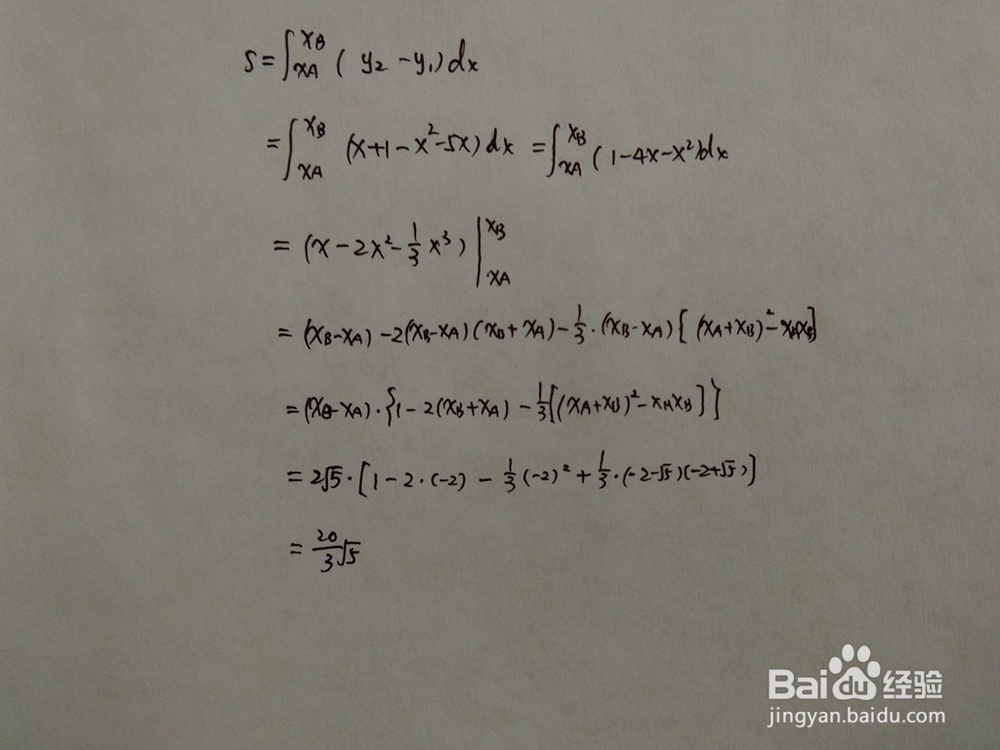 S=∫_{xA}^{xB} (y₂-y₁)dx
=∫_{xA}^{xB} (x+1-x²-5x)dx =∫_{xA}^{xB} (1-4x-x²)dx
=(x-2x²-\frac{1}{3}x³)|_{xA}^{xB}
=(xB-xA)-2(xB-xA)(xB+xA)-\frac{1}{3}·(xB-xA)[(xA+xB)²-xAxB]
=(xB-xA)·{1-2(xB+xA)-\frac{1}{3}[(xA+xB)²-xAxB]}
=2√5·[1-2·(-2)-\frac{1}{3}(-2)²+\frac{1}{3}·(-2-√5)(-2+√5)]
=\frac{20}{3}√5
Baidu经验
jingyan.baidu.com